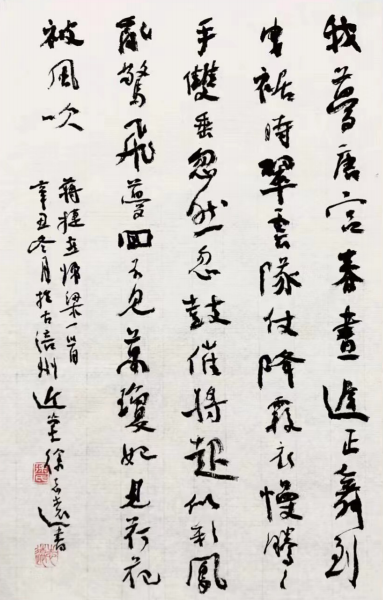 我夢唐宮春晝遲正舞到
曳裾時翠雲隊仗降霞衣慢騰々
手雙垂忽然急鼓催將起似彩鳳
亂驚飛夢回不見萬瓊妃見荷花
被風吹
蔣捷燕歸梁一首
辛丑冬月於古涪州近徐書